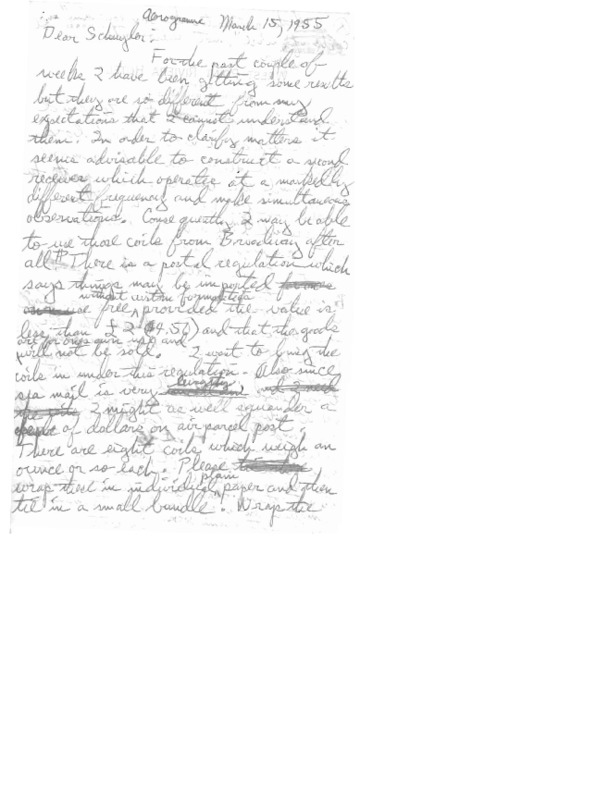 Aerogramme March 15, 1955
Dear Schuyler:
For the past couple of
weeks I have been getting some results
but they are so different from my
expectations that I cannot understand
them. In order to clarify matters it
seems advisable to construct a second
receiver which operates at a markedly
different frequency and make simultaneous
observations. Consequently, I may be able
to use those coils from Broadway after
all. There is a postal regulation which
says things may be imported
without custom formalities
free, provided the value is
less than £2 ($4.56) and that the goods
are for ones own use and
will not be sold. I want to bring the
coils in under this regulation. Also since
lengthy
sea mail is very
I might as well squander a
couple of dollars on air parcel post.
There are eight coils which weigh an
ounce or so each. Please
plain
wrap these in individual paper and then
tie in a small bundle. Wrap the